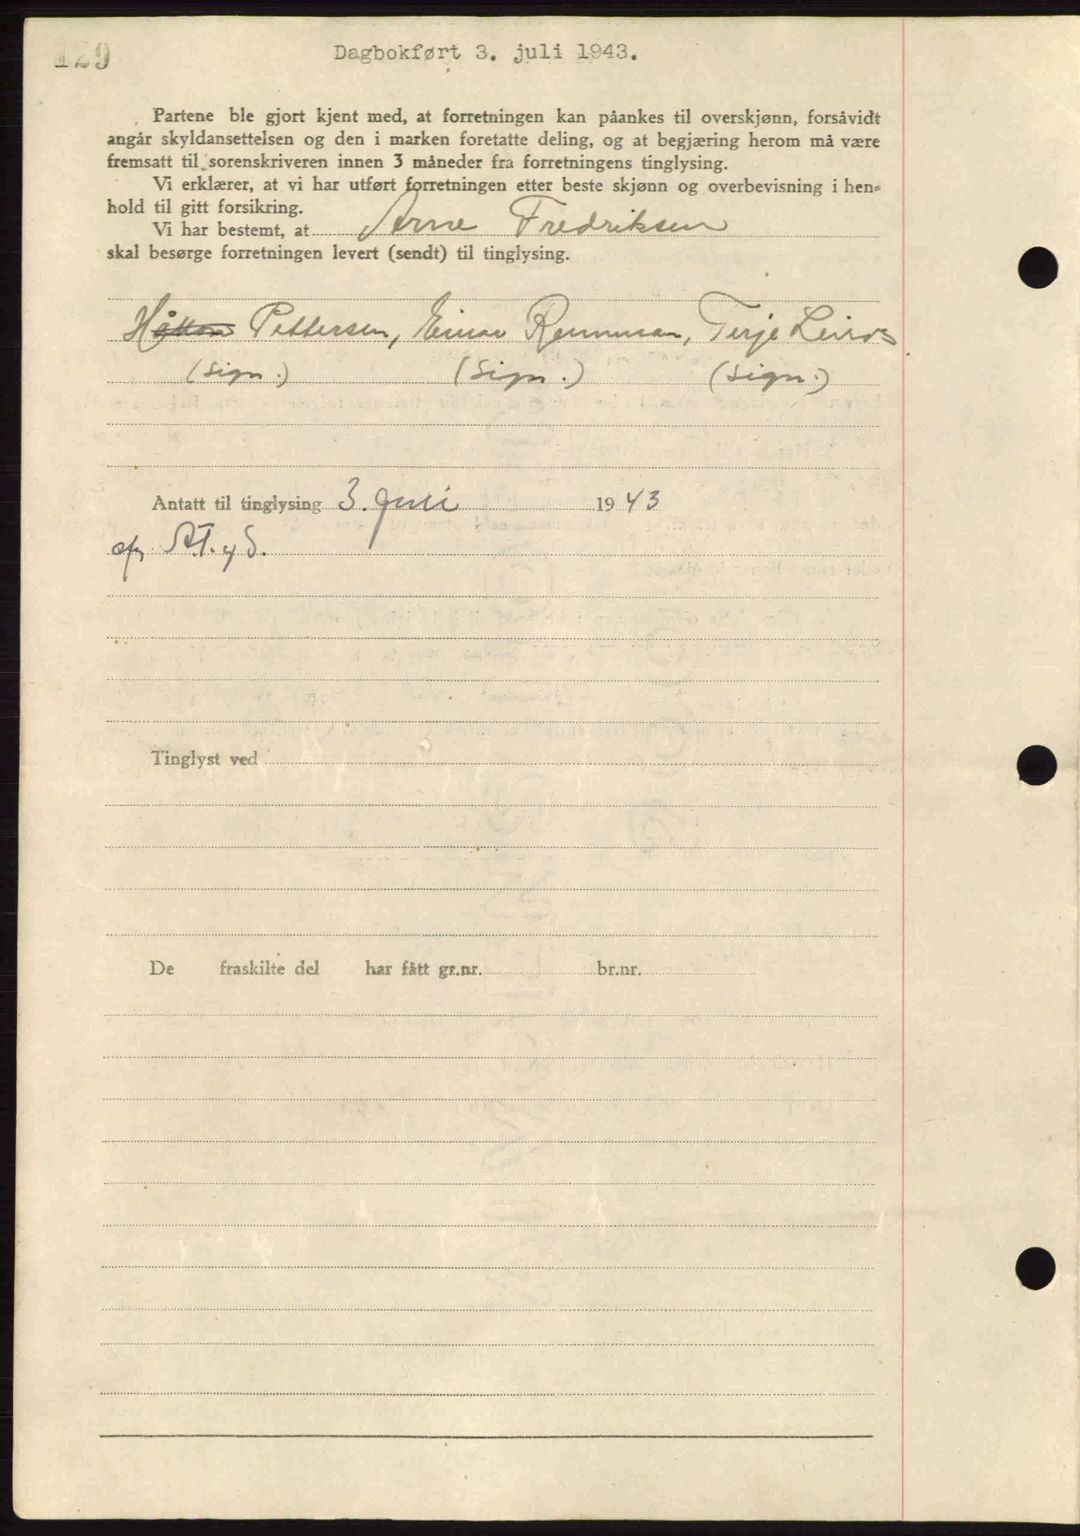 129
Dagbokført 3. juli 1943.
Partene ble gjort kjent med, at forretningen kan påankes til overskjønn, forsåvidt
angår skyldansettelsen og den i marken foretatte deling, og at begjæring herom må være
fremsatt til sorenskriveren innen 3 måneder fra forretningens tinglysing.
Vi erklærer, at vi har utført forretningen etter beste skjønn og overbevisning i hen=
hold til gitt forsikring.
Vi har bestemt, at Arne Fredriksen
skal besørge forretningen levert (sendt) til tinglysing.
Pettersen, Einar Terje
(Sign.) (Sign.) (Sign.)
Antatt til tinglysing 3. Juli 1943
Tinglyst ved
De fraskilte del har fått gr.nr. br.nr.